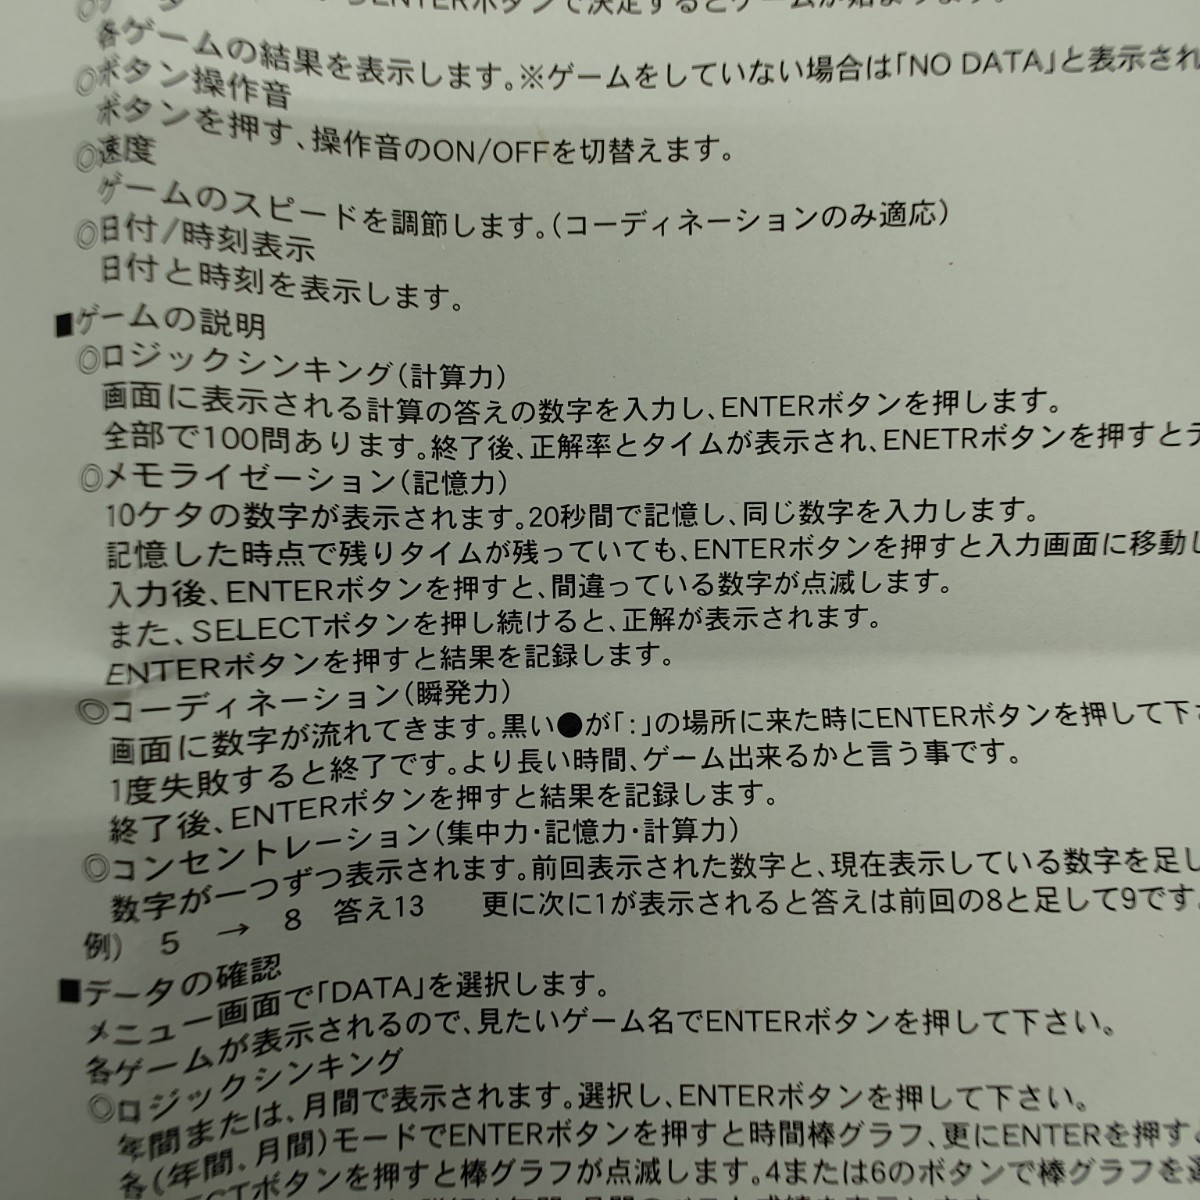 ENTERボタンで決定するとゲームが始まります。
各ゲームの結果を表示します。※ゲームをしていない場合は「NO DATA」と表示され
◎ボタン操作音
ボタンを押す、操作音のON/OFFを切替えます。
◎速度
ゲームのスピードを調節します。(コーディネーションのみ適応)
◎日付/時刻表示
日付と時刻を表示します。
■ゲームの説明
◎ロジックシンキング(計算力)
画面に表示される計算の答えの数字を入力し、ENTERボタンを押します。
全部で100問あります。終了後、正解率とタイムが表示され、ENETRボタンを押すとデ
◎メモライゼーション(記憶力)
10ケタの数字が表示されます。20秒間で記憶し、同じ数字を入力します。
記憶した時点で残りタイムが残っていても、ENTERボタンを押すと入力画面に移動し
入力後、ENTERボタンを押すと、間違っている数字が点滅します。
また、SELECTボタンを押し続けると、正解が表示されます。
ENTERボタンを押すと結果を記録します。
◎コーディネーション(瞬発力)
画面に数字が流れてきます。黒い●が「:」の場所に来た時にENTERボタンを押して下さ
1度失敗すると終了です。より長い時間、ゲーム出来るかと言う事です。
終了後、ENTERボタンを押すと結果を記録します。
◎コンセントレーション(集中力・記憶力・計算力)
数字が一つずつ表示されます。前回表示された数字と、現在表示している数字を足し
例) 5 → 8 答え13 更に次に1が表示されると答えは前回の8と足して9です。
■データの確認
メニュー画面で「DATA」を選択します。
各ゲームが表示されるので、見たいゲーム名でENTERボタンを押して下さい。
◎ロジックシンキング
年間または、月間で表示されます。選択し、ENTERボタンを押して下さい。
各(年間、月間)モードでENTERボタンを押すと時間棒グラフ、更にENTERを押すと
ECTボタンを押すと棒グラフが点滅します。4または6のボタンで棒グラフを選